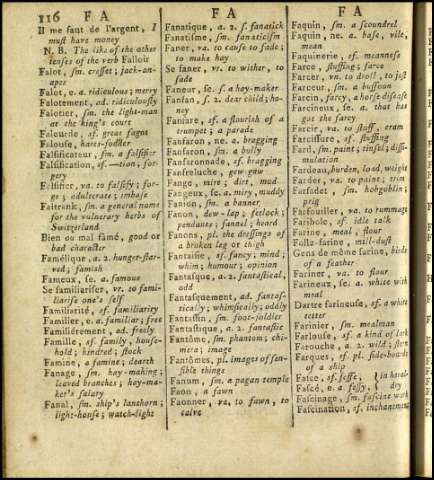 116 F A
Il me faut de l'argent, I
must have money
N. B. The like of the other
senses of the verb Falloir
Falot, sm. cresset; jack-an-
apes
Falot, e. a. ridiculous; merry
Falotement, ad. ridiculously
Falotier, sm. the light-man
at the king's court
Falourde, sf. great fagot
Falouse, hares-fodder
Falsificateur, sm. a falsifier
Falsification, sf.—tion; for-
gery
Falsifier, va. to falsify; for-
ge; adulterate; imbase
Faltrank, sm. a general name
for the vulnerary herbs of
Switzerland
Bien ou mal famé, good or
bad character
Famélique, a. 2. hunger-star-
ved; famish
Fameux, se. a. famous
Se familiariser, vr. to fami-
liarise one's self
Familiarité, sf. familiarity
Familier, e. a. familiar; free
Familiérement, ad. freely
Famille, sf. family, house-
hold; kindred; stock
Famine, a famine; dearth
Fanage, sm. hay-making;
leaved branches; hay-ma-
ker's salary
Fanal, sm. ship's lanthorn;
light-house; watch-light
F A
Fanatique, a. 2. s. fanatick
Fanatisme, sm. fanaticism
Faner, va. to cause to fade;
to make hay
Se faner, vr. to wither, to
fade
Faneur, se. s. a hay-maker
Fanfan, s. 2. dear child; ho-
ney
Fanfare, sf. a flourish of a
trumpet; a parade
Fanfaron, ne. a. bragging
Fanfaron, sm. a bully
Fanfaronnade, sf. bragging
Fanfreluche, gew-gaw
Fange, mire; dirt, mud
Fangeux, se. a. miry, muddy
Fanion, sm. a banner
Fanon, dew-lap; fetlock;
pendants; fannel; hoard
Fanons, pl. the dressings of
a broken leg or thigh
Fantaisie, sf. fancy; mind;
whim; humour; opinion
Fantasque, a. 2. fantastical,
odd
Fantasquement, ad. fantas-
tically; whimsically; oddly
Fantassin, sm. foot-soldier
Fantastique, a. 2. fantastic
Fantôme, sm. phantom; chi-
mera; image
Fantômes, pl. images of sen-
sible things
Fanum, sm. a pagan temple
Faon, a fawn
Faonner, va. to fawn, to
calve
F A
Faquin, sm. a scoundrel
Faquin, ne. a. base, vile,
mean
Faquinerie, sf. meanness
Farce, stuffing; farce
Farcer, va. to droll, to jest
Farceur, sm. a buffoon
Farcin, farcy, a horse disease
Farcineux, se. a. that has
got the farcy
Farcir, va. to stuff, cram
Farcissure, sf. stuffing
Fard, sm. paint; tinsel; dissi-
mulation
Fardeau, burden, load, weight
Farder, va. to paint; trim
Farfadet, sm. hobgoblin;
prig
Farfouiller, va. to rummage
Faribole, sf. idle talk
Farine, meal, flour
Folle-farine, mill-dust
Gens de même farine, birds
of a feather
Fariner, va. to flour
Farineux, se. a. white with
meal
Dartre farineuse, sf. a white
tetter
Farinier, sm. mealman
Farlouse, sf. a kind of lark
Farouche, a. 2. wild; stern
Farques, sf. pl. side-boards
of a ship
Fasce, sf. fesse, } in heral-
Fascé, e. a. fessy, } dry
Fascinage, sm. fascine work
Fascination, sf. inchantment